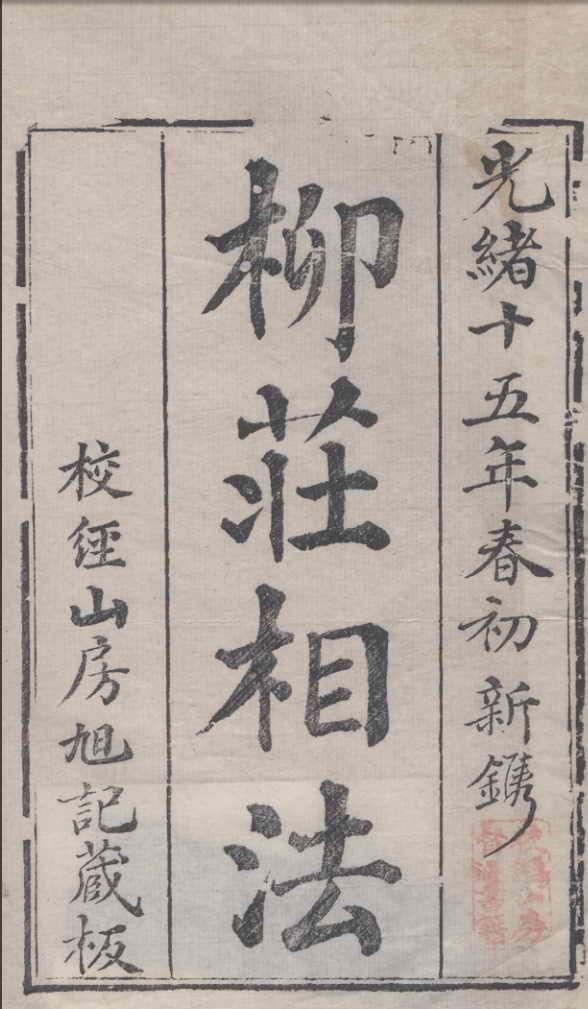 光緒十五年春初新鐫
柳莊相法
校經山房旭記藏板